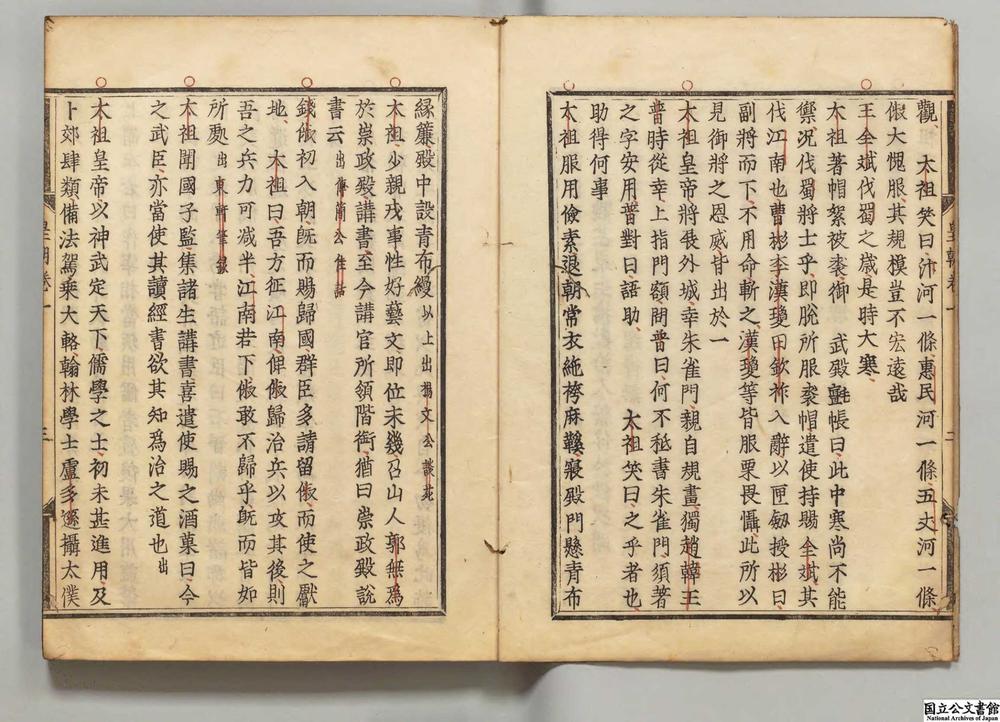 觀　太祖笑曰汴河一條惠民河一條五丈河一條
俶大愧服其規模豈不宏遠哉
王全斌伐蜀之歲是時大寒
太祖著帽絮被裘御　武殿氊帳曰此中寒尚不能
禦況伐蜀將士乎即脫所服裘帽遣使持賜全斌其
伐江南也曹彬李漢瓊田欽祚入辭以匣劔授彬曰
副將而下不用命斬之漢瓊等皆服栗畏懾此所以
見御將之恩威皆出於一
太祖皇帝將展外城幸朱雀門親自規畫獨趙韓王
普時從幸上指門額問普曰何不秪書朱雀門須著
之字安用普對曰語助　太祖笑曰之乎者也
助得何事
太祖服用儉素退朝常衣絁袴麻鞵寢殿門懸青布
縁簾殿中設青布縵以上出楊文公談苑
太祖少親戎事性好藝文即位未幾召山人郭無爲
於崇政殿講書至今講官所領階銜猶曰崇政殿說
書云出傳簡公佳話
錢俶初入朝旣而賜歸國群臣多請留俶而使之獻
地太祖曰吾方征江南俾俶歸治兵以攻其後則
吾之兵力可減半江南若下俶敢不歸乎旣而皆如
所處出東軒筆錄
太祖聞國子監集諸生講書喜遣使賜之酒菓曰今
之武臣亦當使其讀經書欲其知爲治之道也出
太祖皇帝以神武定天下儒學之士初未甚進用及
卜郊肆類備法駕乘大輅翰林學士盧多遜攝太僕
皇朝卷一
三
国立公文書館
National Archives of Japan